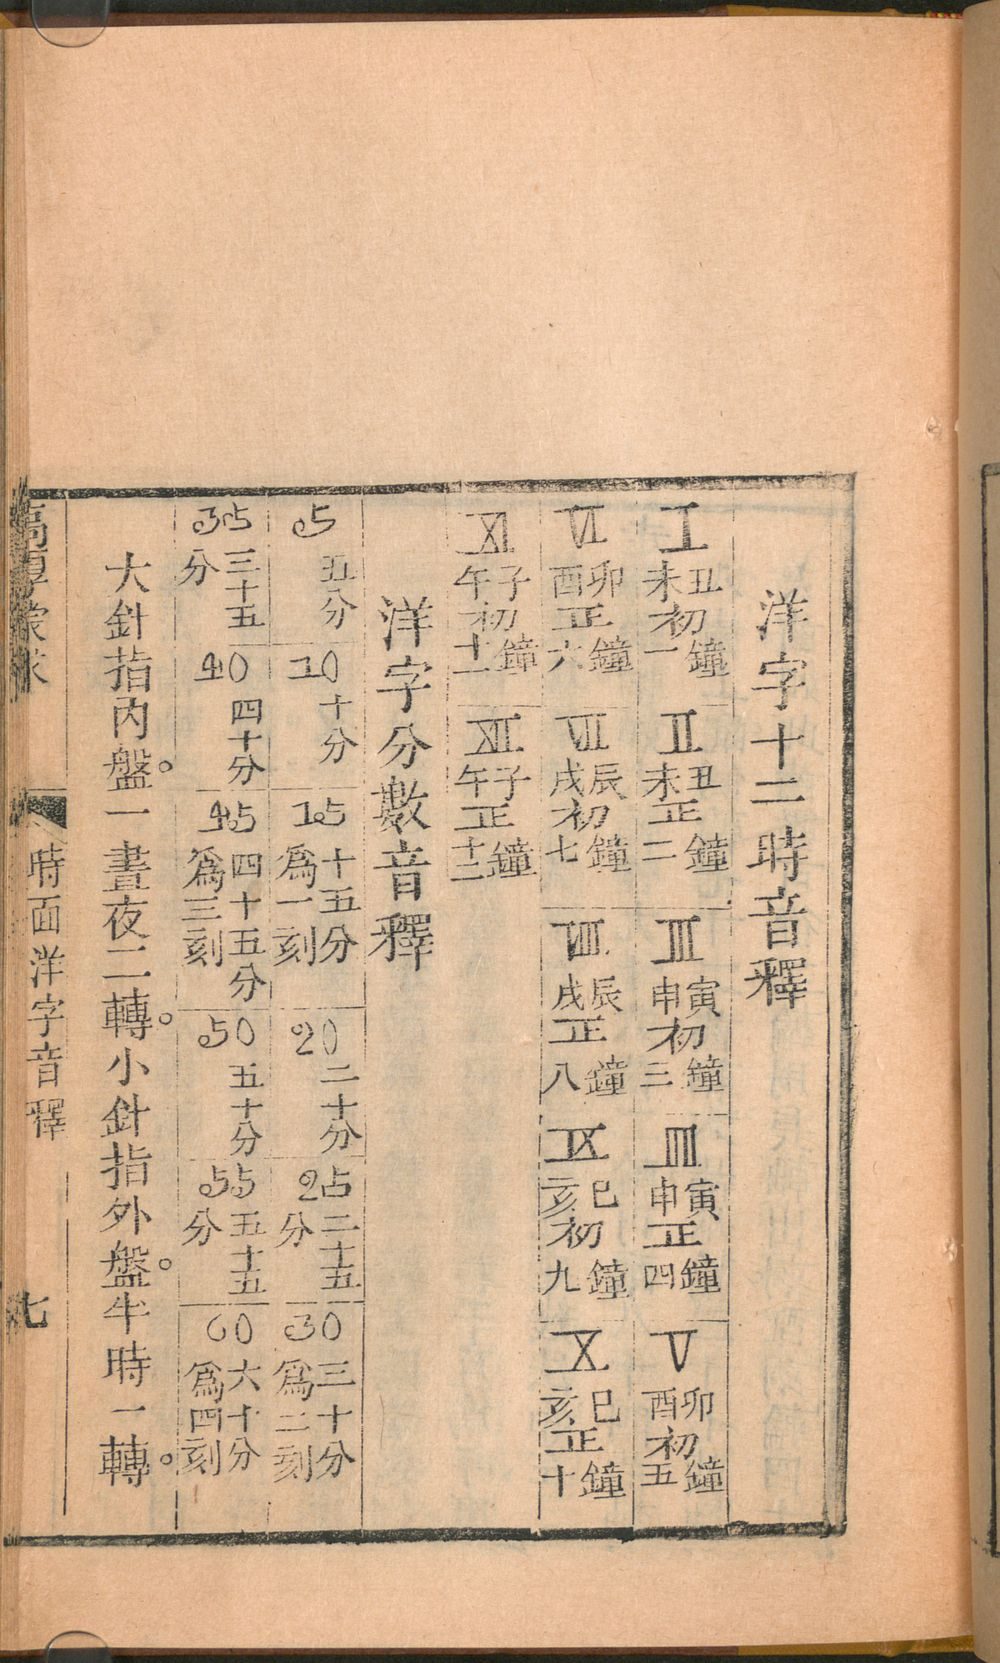 洋字十二時音釋
I 丑未初一鐘
II 丑未正二鐘
III 寅申初三鐘
IIII 寅申正四鐘
V 卯酉初五鐘
VI 卯酉正六鐘
VII 辰戌初七鐘
VIII 辰戌正八鐘
IX 巳亥初九鐘
X 巳亥正十鐘
XI 子午初十一鐘
XII 子午正十二鐘
洋字分數音釋
5 五分
10 十分
15 十五分為一刻
20 二十分
25 二十五分
30 三十分為二刻
35 三十五分
40 四十分
45 四十五分為三刻
50 五十分
55 五十五分
60 六十分為四刻
大針指內盤。一晝夜二轉。小針指外盤。半時一轉。
高厚蒙求
時面洋字音釋
七